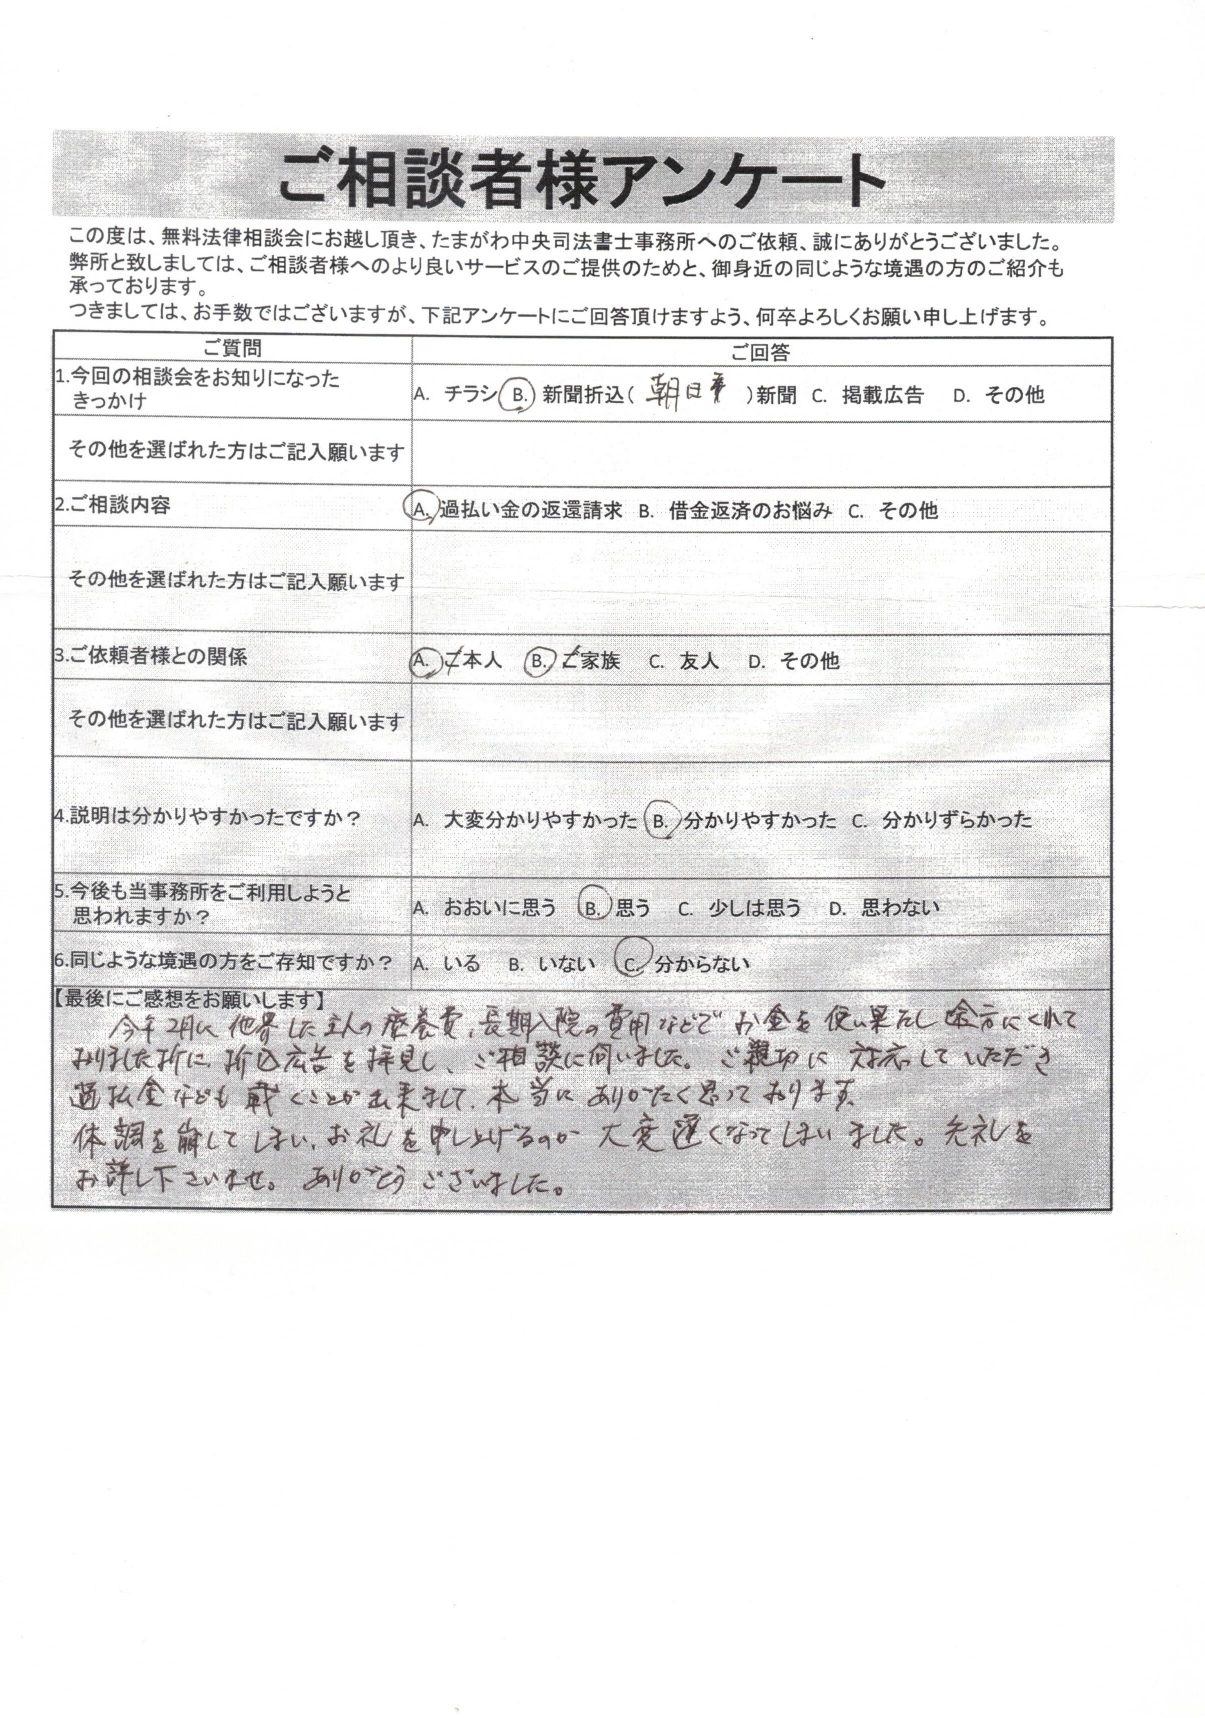 ご相談者様アンケート
この度は、無料法律相談会にお越し頂き、たまがわ中央司法書士事務所へのご依頼、誠にありがとうございました。
弊所と致しましては、ご相談者様へのより良いサービスのご提供のためと、御身近の同じような境遇の方のご紹介も
承っております。
つきましては、お手数ではございますが、下記アンケートにご回答頂けますよう、何卒よろしくお願い申し上げます。
ご質問 ご回答
1.今回の相談会をお知りになった
きっかけ
A. チラシ B. 新聞折込( 朝日 )新聞 C. 掲載広告 D. その他
その他を選ばれた方はご記入願います
2.ご相談内容 A. 過払い金の返還請求 B. 借金返済のお悩み C. その他
その他を選ばれた方はご記入願います
3.ご依頼者様との関係 A. ご本人 B. ご家族 C. 友人 D. その他
その他を選ばれた方はご記入願います
4.説明は分かりやすかったですか? A. 大変分かりやすかった B. 分かりやすかった C. 分かりずらかった
5.今後も当事務所をご利用しようと
思われますか?
A. おおいに思う B. 思う C. 少しは思う D. 思わない
6.同じような境遇の方をご存知ですか? A. いる B. いない C. 分からない
【最後にご感想をお願いします】
今年2月に他界した主人の療養費、長期入院の費用などでお金を使い果たし途方にくれて
おりました折に、折込広告を拝見し、ご相談に伺いました。ご親切に対応していただき
過払金なども戴くことが出来まして、本当にありがたく思っております。
体調を崩してしまい、お礼を申し上げるのが大変遅くなってしまいました。失礼を
お許し下さいませ。ありがとうございました。